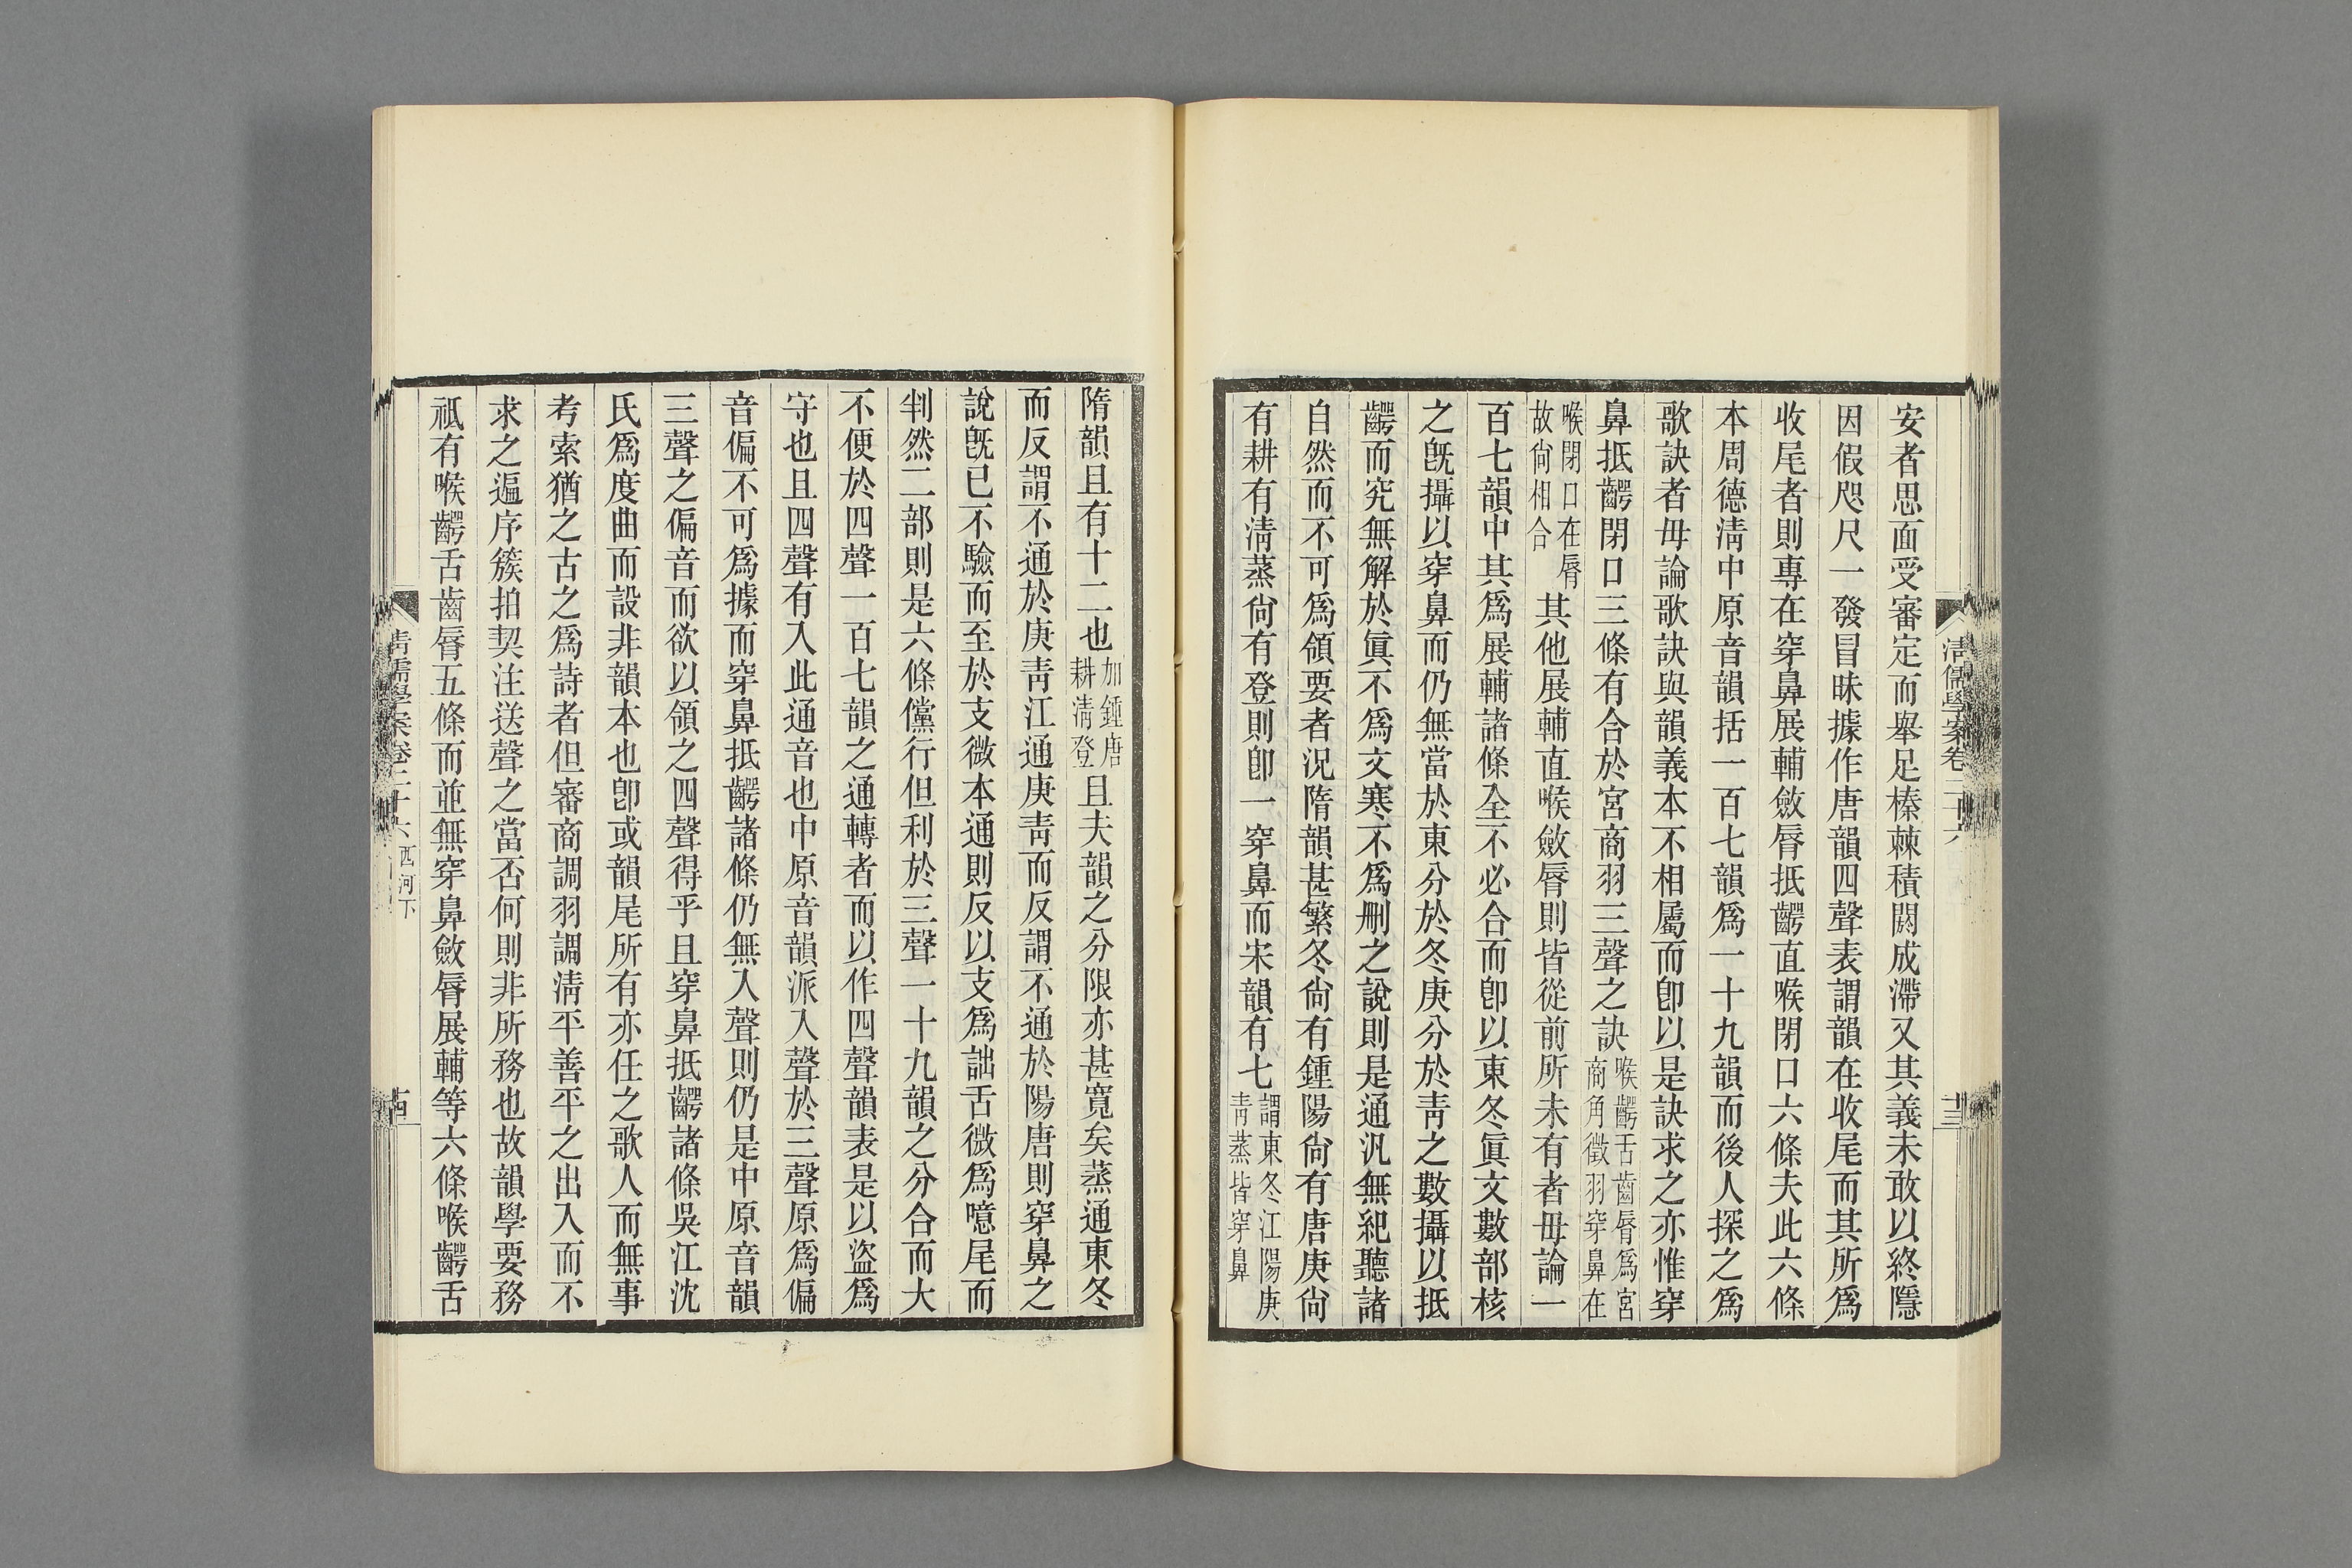 清儒學案卷二十六
十三
安者思面受審定而舉足榛棘積閼成滯又其義未敢以終隱
因假咫尺一發冒昧據作唐韻四聲表謂韻在收尾而其所爲
收尾者則專在穿鼻展輔斂脣抵齶直喉閉口六條夫此六條
本周德淸中原音韻括一百七韻爲一十九韻而後人探之爲
歌訣者毋論歌訣與韻義本不相屬而卽以是訣求之亦惟穿
鼻抵齶閉口三條有合於宮商羽三聲之訣喉齶舌齒脣爲宮商角徵羽穿鼻在
喉閉口在脣故尙相合其他展輔直喉斂脣則皆從前所未有者毋論一
百七韻中其爲展輔諸條全不必合而卽以東冬眞文數部核
之旣攝以穿鼻而仍無當於東分於冬庚分於靑之數攝以抵
齶而究無解於眞不爲文寒不爲刪之說則是通汎無紀聽諸
自然而不可爲領要者況隋韻甚繁冬尙有鍾陽尙有唐庚尙
有耕有淸蒸尙有登則卽一穿鼻而宋韻有七謂東冬江陽庚靑蒸皆穿鼻
隋韻且有十二也加鍾唐耕淸登且夫韻之分限亦甚寬矣蒸通東冬
而反謂不通於庚靑江通庚靑而反謂不通於陽唐則穿鼻之
說旣已不驗而至於支微本通則反以支爲詘舌微爲噫尾而
判然二部則是六條儻行但利於三聲一十九韻之分合而大
不便於四聲一百七韻之通轉者而以作四聲韻表是以盜爲
守也且四聲有入此通音也中原音韻派入聲於三聲原爲偏
音偏不可爲據而穿鼻抵齶諸條仍無入聲則仍是中原音韻
三聲之偏音而欲以領之四聲得乎且穿鼻抵齶諸條吳江沈
氏爲度曲而設非韻本也卽或韻尾所有亦任之歌人而無事
考索猶之古之爲詩者但審商調羽調淸平善平之出入而不
求之逼序簇拍契注送聲之當否何則非所務也故韻學要務
祇有喉齶舌齒脣五條而並無穿鼻斂脣展輔等六條喉齶舌
淸儒學案卷二十六 西河下
十四